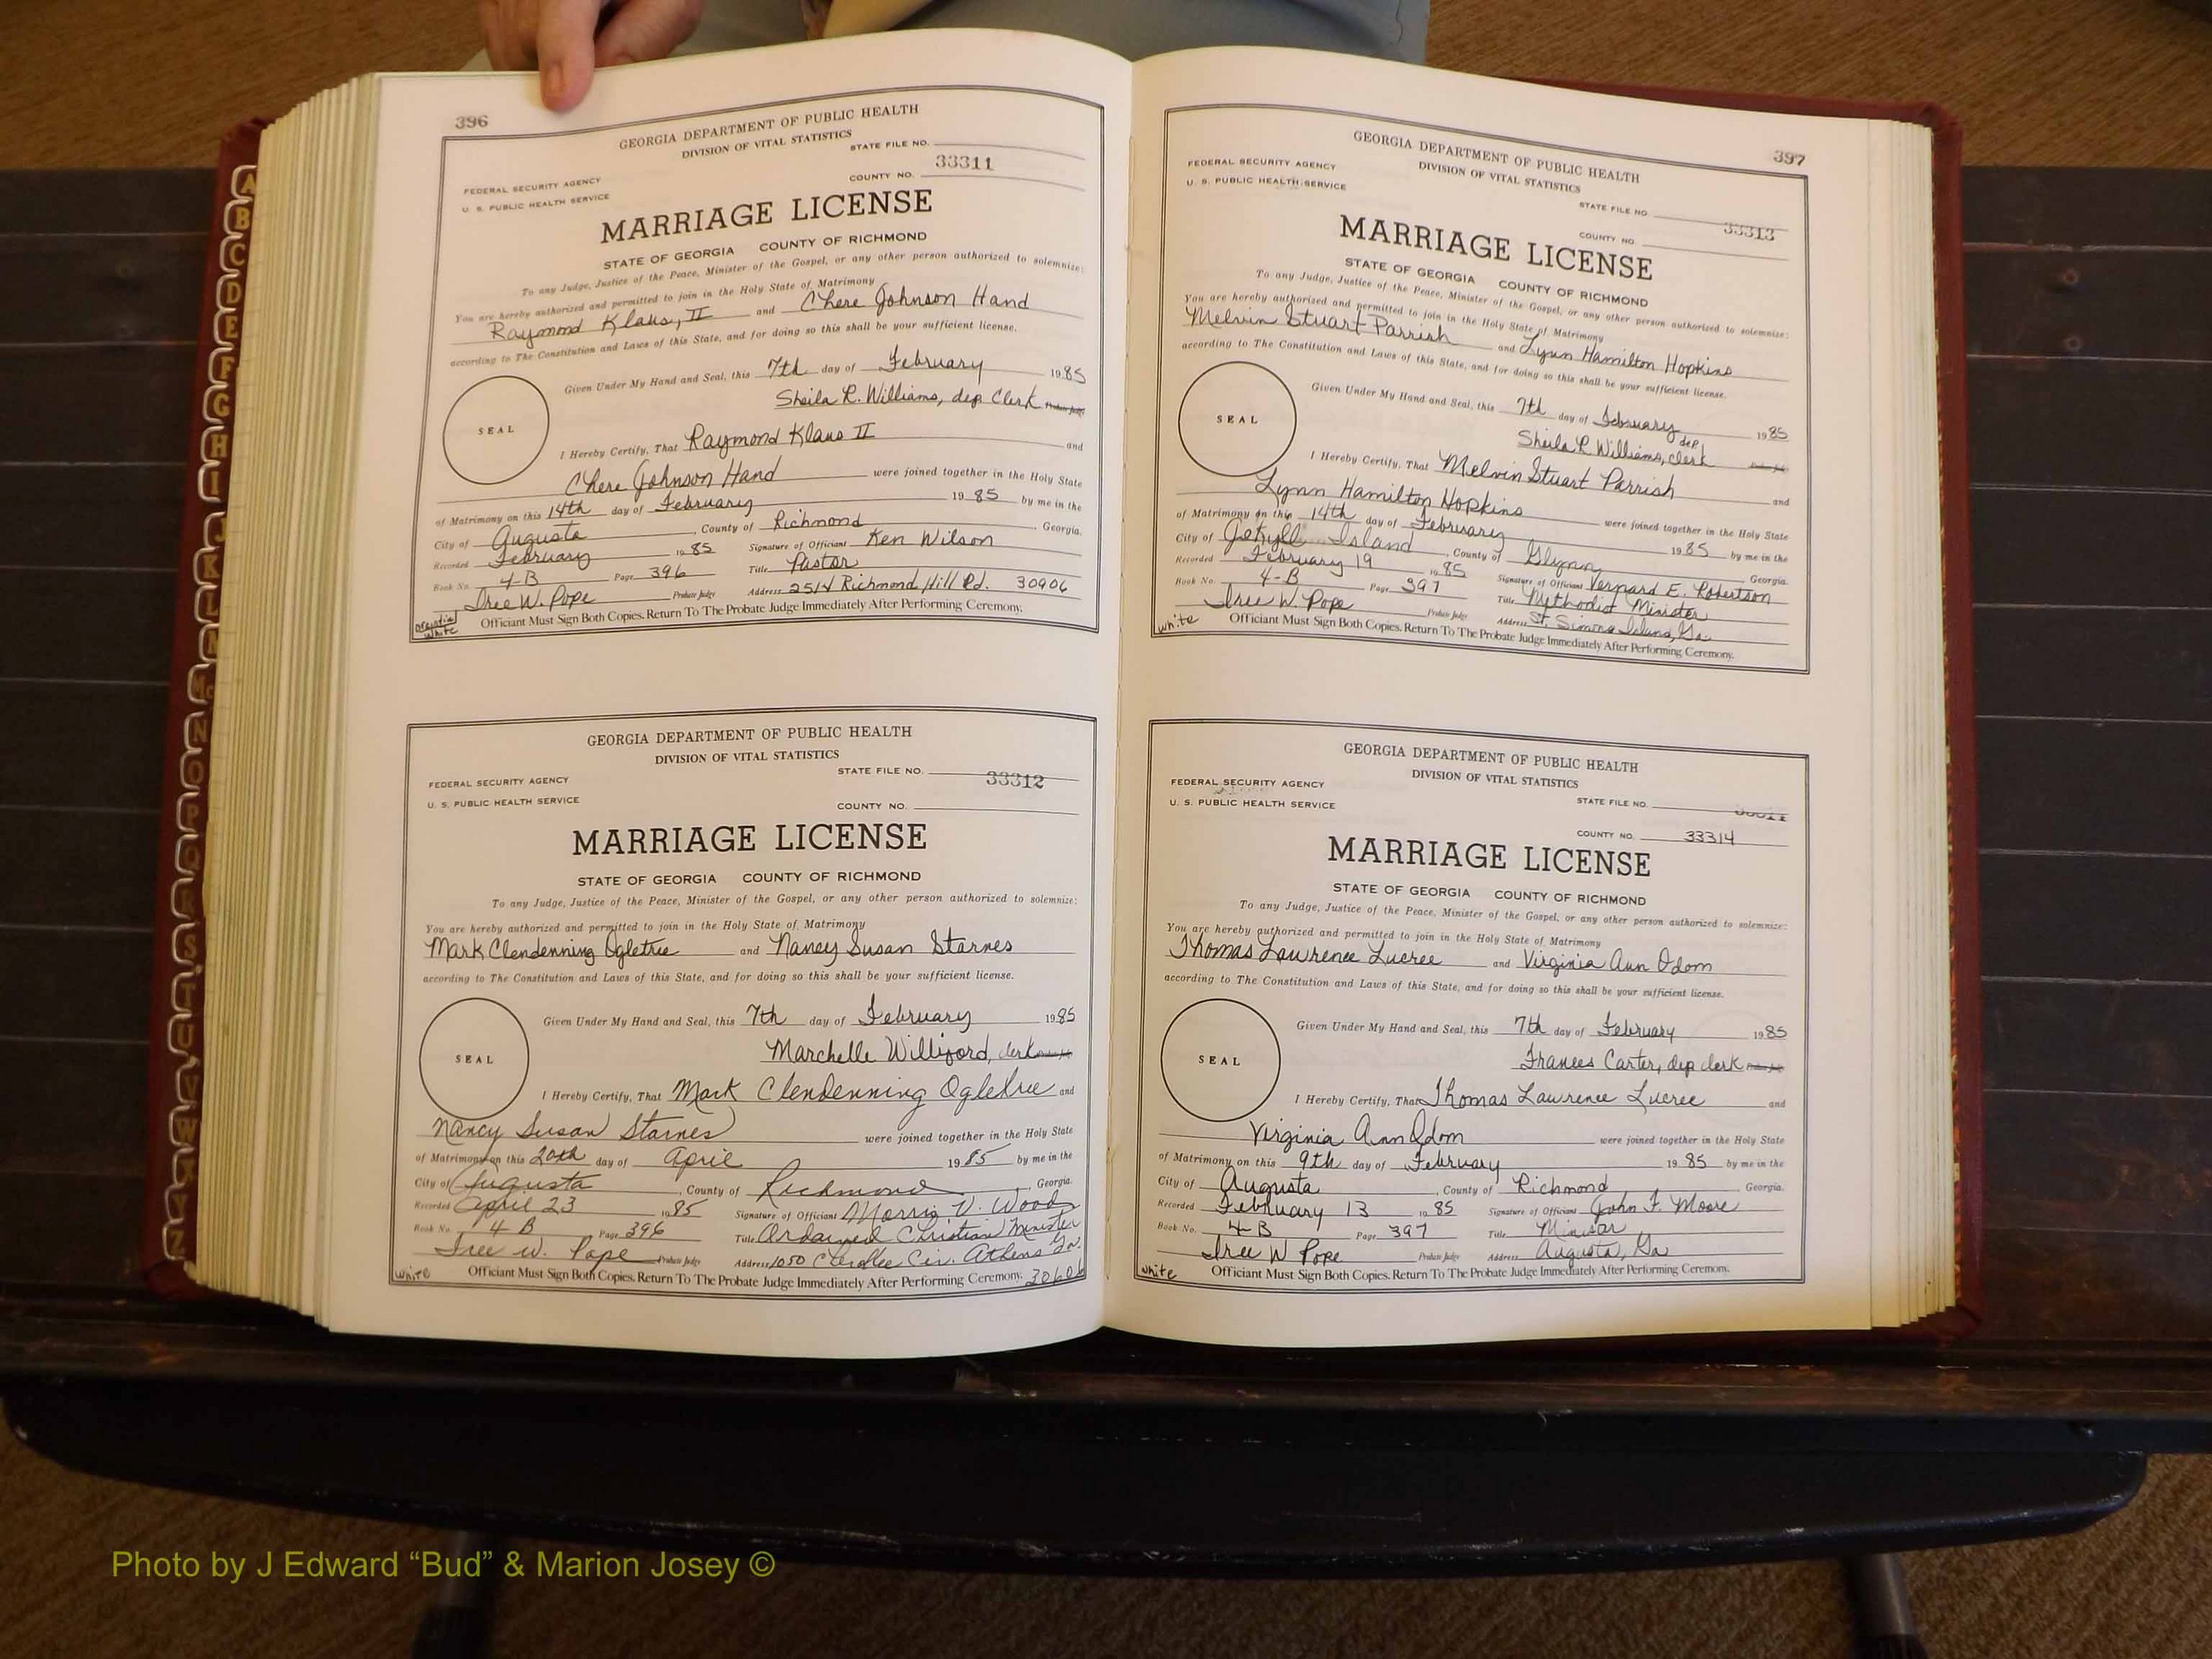 396
GEORGIA DEPARTMENT OF PUBLIC HEALTH
DIVISION OF VITAL STATISTICS
STATE FILE NO.
33311
FEDERAL SECURITY AGENCY
COUNTY NO.
U. S. PUBLIC HEALTH SERVICE
MARRIAGE LICENSE
STATE OF GEORGIA COUNTY OF RICHMOND
To any Judge, Justice of the Peace, Minister of the Gospel, or any other person authorized to solemnize:
You are hereby authorized and permitted to join in the Holy State of Matrimony
Raymond Klaus, II and Chere Johnson Hand
according to The Constitution and Laws of this State, and for doing so this shall be your sufficient license.
Given Under My Hand and Seal, this 7th day of February 1985
Sheila R. Williams, dep Clerk Probate Judge
SEAL
I Hereby Certify, That Raymond Klaus II and
Chere Johnson Hand were joined together in the Holy State
of Matrimony on this 14th day of February 1985 by me in the
City of Augusta, County of Richmond, Georgia.
Recorded February 1985 Signature of Officiant Ken Wilson
Book No. 4-B Page 396 Title Pastor
Iree W. Pope Probate Judge Address 2514 Richmond Hill Rd. 30906
white Officiant Must Sign Both Copies. Return To The Probate Judge Immediately After Performing Ceremony.
GEORGIA DEPARTMENT OF PUBLIC HEALTH
DIVISION OF VITAL STATISTICS
STATE FILE NO. 33312
FEDERAL SECURITY AGENCY
U. S. PUBLIC HEALTH SERVICE
COUNTY NO.
MARRIAGE LICENSE
STATE OF GEORGIA COUNTY OF RICHMOND
To any Judge, Justice of the Peace, Minister of the Gospel, or any other person authorized to solemnize:
You are hereby authorized and permitted to join in the Holy State of Matrimony
Mark Clendenning Ogletree and Nancy Susan Starnes
according to The Constitution and Laws of this State, and for doing so this shall be your sufficient license.
Given Under My Hand and Seal, this 7th day of February 1985
Marchelle Williford, clerk
SEAL
I Hereby Certify, That Mark Clendenning Ogletree and
Nancy Susan Starnes were joined together in the Holy State
of Matrimony on this 20th day of April 1985 by me in the
City of Augusta, County of Richmond, Georgia.
Recorded April 23 1985 Signature of Officiant Morris V. Wood
Book No. 4 B Page 396 Title Ordained Christian Minister
Iree W. Pope Probate Judge Address 1050 Cir. Athens Ga.
white Officiant Must Sign Both Copies. Return To The Probate Judge Immediately After Performing Ceremony. 30606
397
GEORGIA DEPARTMENT OF PUBLIC HEALTH
DIVISION OF VITAL STATISTICS
FEDERAL SECURITY AGENCY
U. S. PUBLIC HEALTH SERVICE
STATE FILE NO. 33313
COUNTY NO.
MARRIAGE LICENSE
STATE OF GEORGIA COUNTY OF RICHMOND
To any Judge, Justice of the Peace, Minister of the Gospel, or any other person authorized to solemnize:
You are hereby authorized and permitted to join in the Holy State of Matrimony
Melvin Stuart Parrish and Lynn Hamilton Hopkins
according to The Constitution and Laws of this State, and for doing so this shall be your sufficient license.
Given Under My Hand and Seal, this 7th day of February 1985
Sheila R. Williams, dep clerk
SEAL
I Hereby Certify, That Melvin Stuart Parrish and
Lynn Hamilton Hopkins were joined together in the Holy State
of Matrimony on this 14th day of February 1985 by me in the
City of Jekyll Island, County of Glynn Georgia.
Recorded February 19 1985 Signature of Officiant Vernard E. Robertson
Book No. 4-B Page 397 Title Methodist Minister
Iree W. Pope Probate Judge Address St. Simons Island, Ga.
white Officiant Must Sign Both Copies. Return To The Probate Judge Immediately After Performing Ceremony.
GEORGIA DEPARTMENT OF PUBLIC HEALTH
DIVISION OF VITAL STATISTICS
FEDERAL SECURITY AGENCY
STATE FILE NO.
U. S. PUBLIC HEALTH SERVICE
COUNTY NO. 33314
MARRIAGE LICENSE
STATE OF GEORGIA COUNTY OF RICHMOND
To any Judge, Justice of the Peace, Minister of the Gospel, or any other person authorized to solemnize:
You are hereby authorized and permitted to join in the Holy State of Matrimony
Thomas Lawrence Lucree and Virginia Ann Odom
according to The Constitution and Laws of this State, and for doing so this shall be your sufficient license.
Given Under My Hand and Seal, this 7th day of February 1985
Frances Carter, dep clerk
SEAL
I Hereby Certify, That Thomas Lawrence Lucree and
Virginia Ann Odom were joined together in the Holy State
of Matrimony on this 9th day of February 1985 by me in the
City of Augusta, County of Richmond, Georgia.
Recorded February 13 1985 Signature of Officiant John F. Moore
Book No. 4-B Page 397 Title
Iree W Pope Probate Judge Address Augusta, Ga
white Officiant Must Sign Both Copies. Return To The Probate Judge Immediately After Performing Ceremony.
A
B
C
D
E
F
G
H
I
J
K
L
M
Mc
N
O
P
Q
R
S
T
U
V
W
X
Y
Z
Photo by J Edward “Bud” & Marion Josey ©